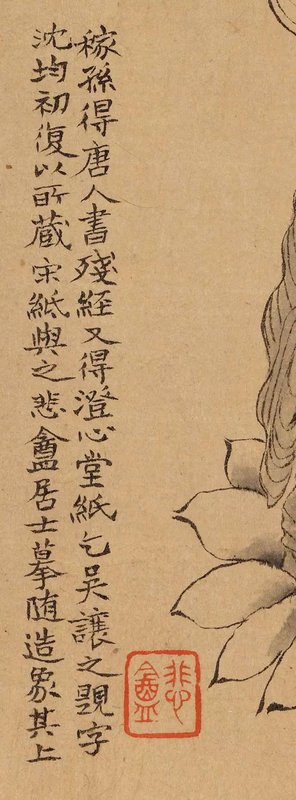 稼孫得唐人書殘經又得澄心堂紙乞吳讓之題字
沈均初復以所藏宋紙與之悲盦居士摹隨造象其上
悲盦